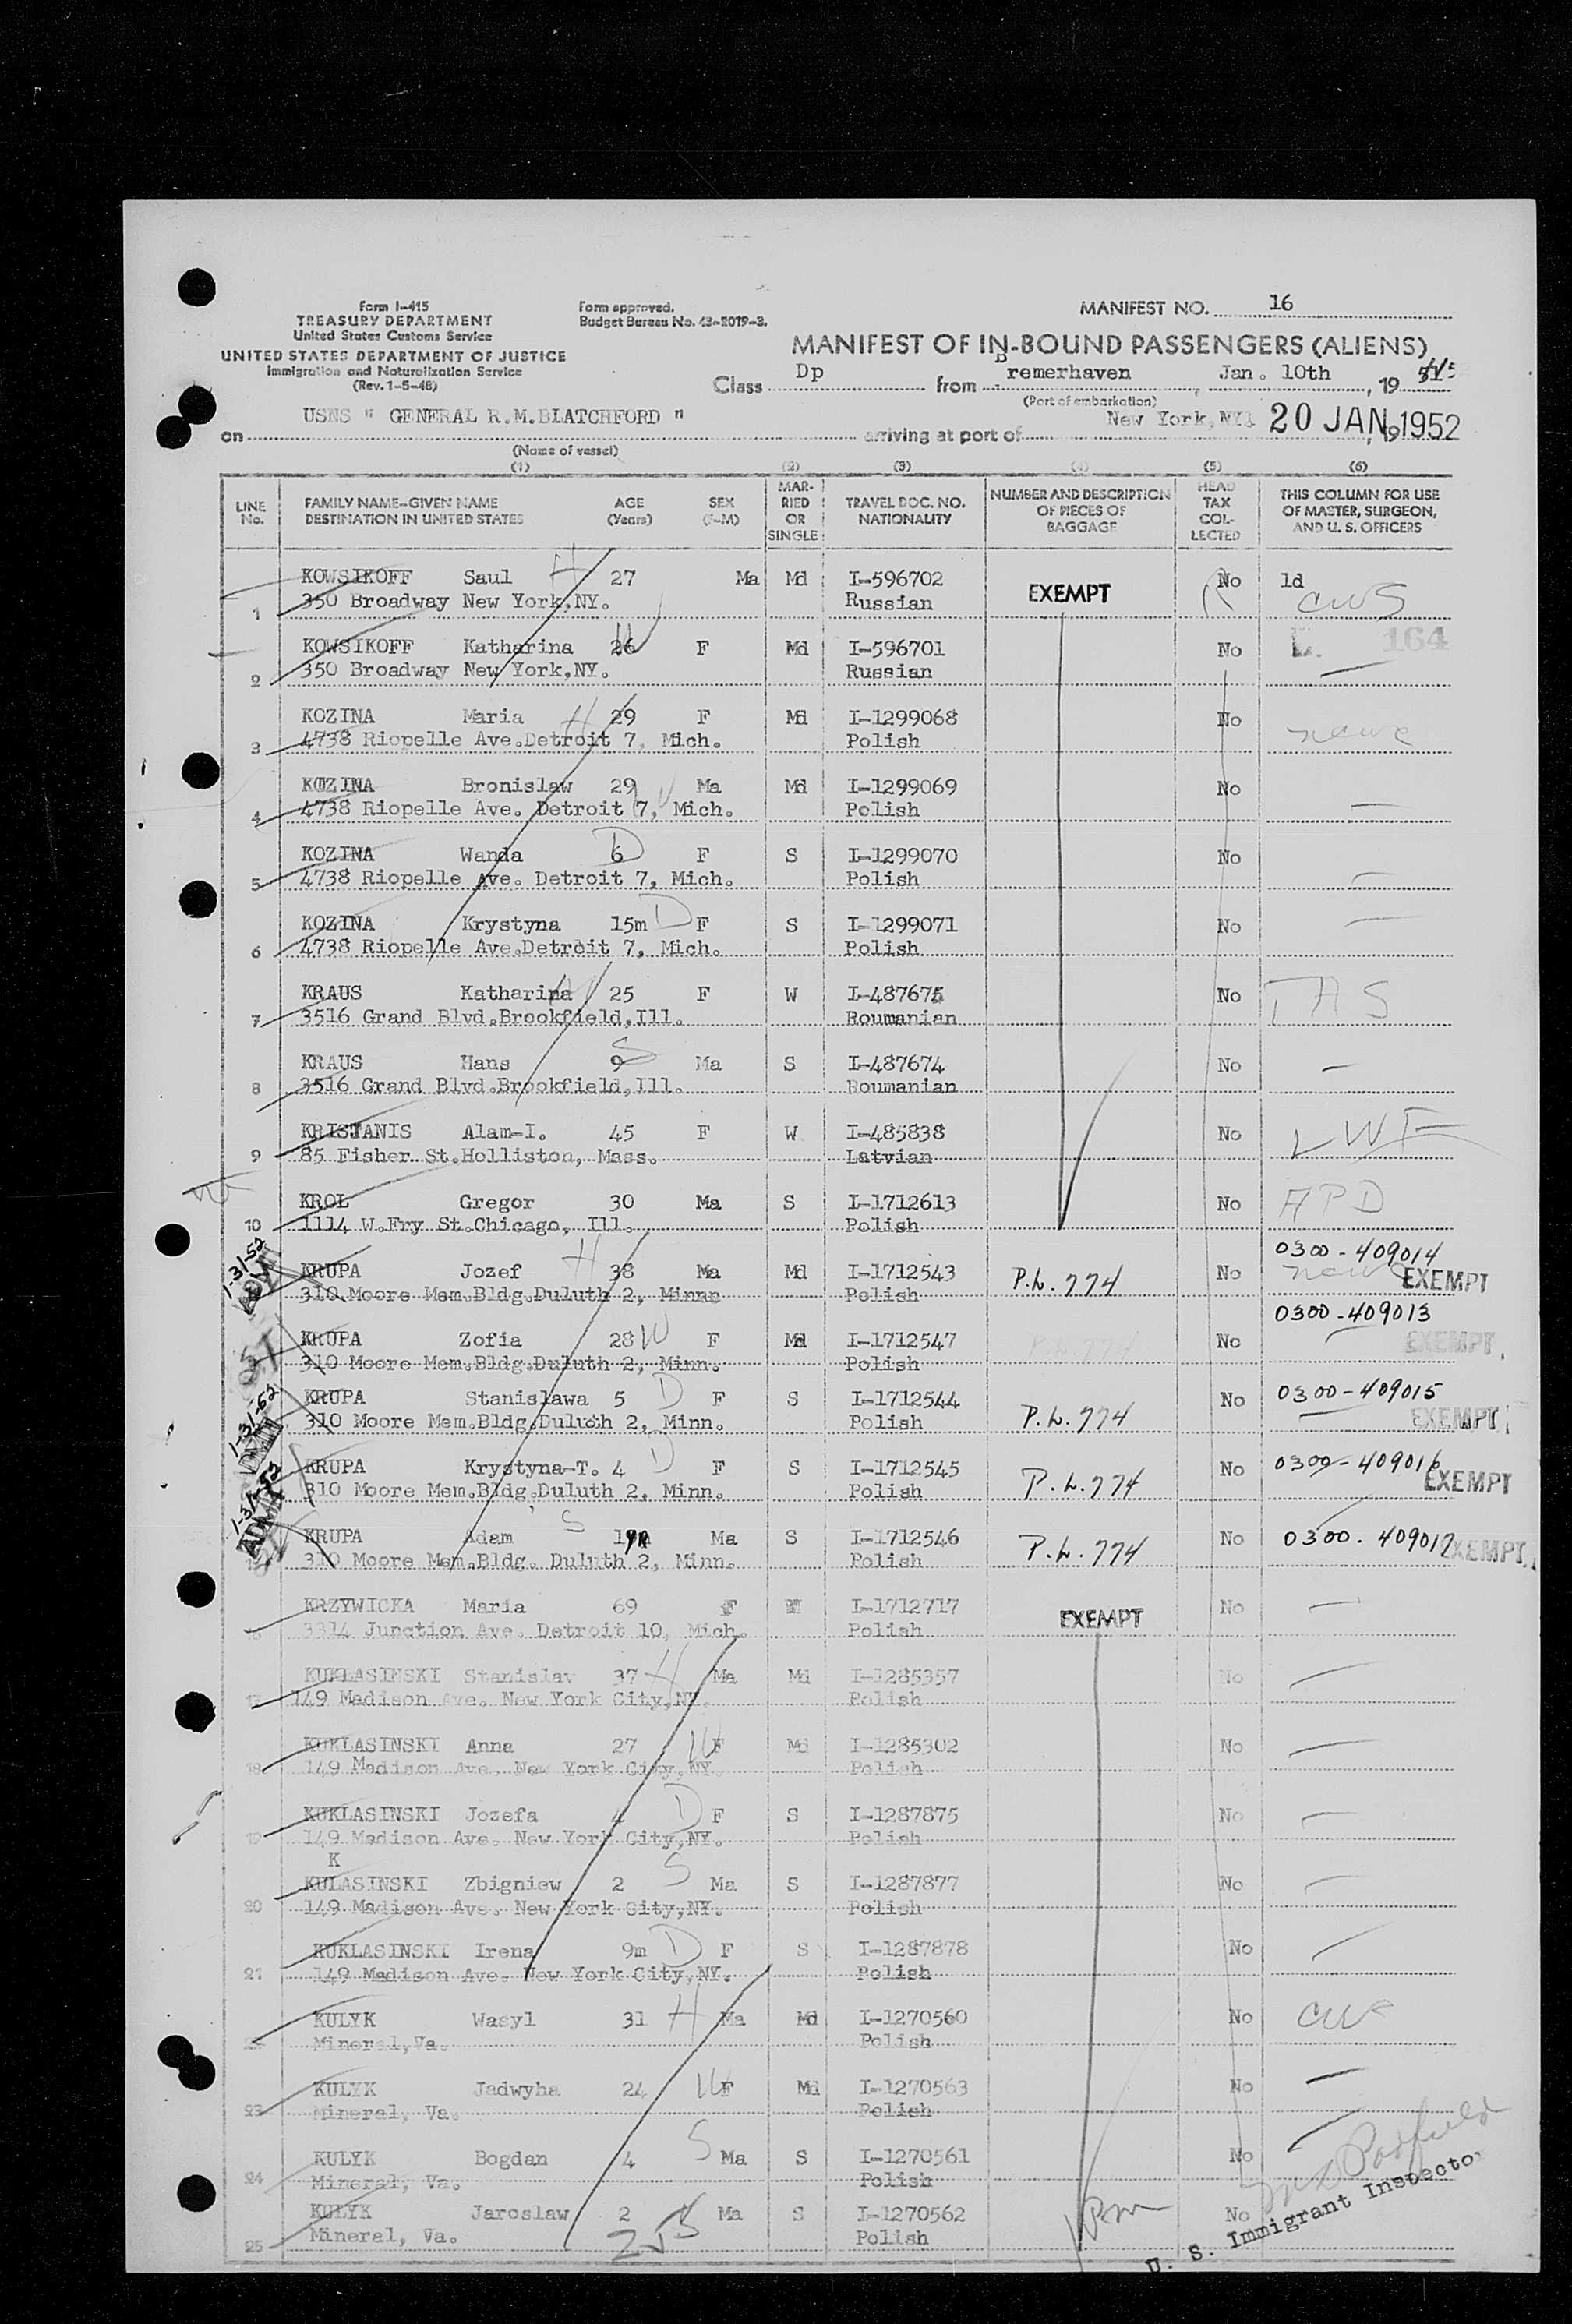 Form I-415
TREASURY DEPARTMENT
United States Customs Service
UNITED STATES DEPARTMENT OF JUSTICE
Immigration and Naturalization Service
(Rev. 1-5-48)
Form approved.
Budget Bureau No. 43-R019-3.
MANIFEST NO. 16
MANIFEST OF IN-BOUND PASSENGERS (ALIENS)
Class Dp from Bremerhaven, Jan. 10th, 19
(Port of embarkation)
on USNS " GENERAL R.M.BLATCHFORD " arriving at port of New York, NY 20 JAN 1952
(Name of vessel)
(1) (2) (3) (4) (5) (6)
LINE No. FAMILY NAME-GIVEN NAME DESTINATION IN UNITED STATES AGE (Years) SEX (F-M) MARRIED OR SINGLE TRAVEL DOC. NO. NATIONALITY NUMBER AND DESCRIPTION OF PIECES OF BAGGAGE HEAD TAX COLLECTED THIS COLUMN FOR USE OF MASTER, SURGEON, AND U. S. OFFICERS
KOWSIKOFF Saul H 27 Ma Md I-596702 EXEMPT No ld
1 350 Broadway New York,NY. Russian CWS
KOWSIKOFF Katharina 26 W F Md I-596701 No 164
2 350 Broadway New York,NY. Russian
KOZINA Maria H 29 F Md I-1299068 No
3 4738 Riopelle Ave.Detroit 7, Mich. Polish NCWC
KOZINA Bronislaw 29 W Ma Md I-1299069 No
4 4738 Riopelle Ave. Detroit 7, Mich. Polish
KOZINA Wanda 6 D F S I-1299070 No
5 4738 Riopelle Ave. Detroit 7, Mich. Polish
KOZINA Krystyna 15m D F S I-1299071 No
6 4738 Riopelle Ave.Detroit 7, Mich. Polish
KRAUS Katharina H 25 F W I-487675 No
7 3516 Grand Blvd.Brookfield,Ill. Roumanian
KRAUS Hans 9 S Ma S I-487674 No
8 3516 Grand Blvd.Brookfield,Ill. Roumanian
KRISTANIS Alam-I. 45 F W I-485838 No LWF
9 85 Fisher St.Holliston, Mass. Latvian
KROL Gregor 30 Ma S I-1712613 No APD
10 1114 W.Fry St.Chicago, Ill. Polish
1-31-52 0300-409014
KRUPA Jozef H 38 Ma Md I-1712543 P.L.774 No EXEMPT
310 Moore Mem.Bldg.Duluth 2, Minn. Polish
0300-409013
KRUPA Zofia 28 W F Md I-1712547 P.L.774 No EXEMPT.
310 Moore Mem.Bldg.Duluth 2, Minn. Polish
1-31-52 KRUPA Stanislawa 5 D F S I-1712544 No 0300-409015
310 Moore Mem.Bldg.Duluth 2, Minn. Polish P.L.774 EXEMPT
1-31-52 KRUPA Krystyna-T. 4 D F S I-1712545 No 0300-409016
310 Moore Mem.Bldg.Duluth 2, Minn. Polish P.L.774 EXEMPT
ADMIT KRUPA Adam S Ma S I-1712546 No 0300.409017
310 Moore Mem.Bldg. Duluth 2, Minn. Polish P.L.774 EXEMPT.
KRZYWICKA Maria 69 F I-1712717 EXEMPT No
16 3314 Junction Ave. Detroit 10, Mich. Polish
KUKLASINSKI Stanislav 37 H Ma Md I-1285357 No
17 149 Madison Ave. New York City,NY. Polish
KUKLASINSKI Anna 27 W F Md I-1285302 No
18 149 Madison Ave. New York City,NY. Polish
KUKLASINSKI Jozefa 4 D F S I-1287875 No
19 149 Madison Ave. New York City,NY. Polish
K
KULASINSKI Zbigniew 2 S Ma S I-1287877 No
20 149 Madison Ave. New York City,NY. Polish
KUKLASINSKI Irena 9m D F S I-1287878 No
21 149 Madison Ave. New York City,NY. Polish
KULYK Wasyl 31 H Ma Md I-1270560 No CWS
22 Mineral,Va. Polish
KULYK Jadwyha 24 W F Md I-1270563 No
23 Mineral, Va. Polish
KULYK Bogdan 4 S Ma S I-1270561 No
24 Mineral, Va. Polish
KULYK Jaroslaw 2 S Ma S I-1270562 No
25 Mineral, Va. Polish
25
U. S. Immigrant Inspector